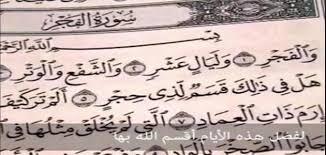 سُورَةُ الْفَجْرِ
بِسْمِ اللَّهِ الرَّحْمَٰنِ
وَالْفَجْرِ ١ وَلَيَالٍ عَشْرٍ ٢ وَالشَّفْعِ وَالْوَتْرِ ٣
هَلْ فِي ذَٰلِكَ قَسَمٌ لِّذِي حِجْرٍ ٥ أَلَمْ تَرَ كَيْفَ
إِرَمَ ذَاتِ الْعِمَادِ ٧ الَّتِي لَمْ يُخْلَقْ مِثْلُهَا فِي
لفضل هذه الأيام أقسم الله بها
جَابُوا الصَّخْرَ بِالْوَادِ